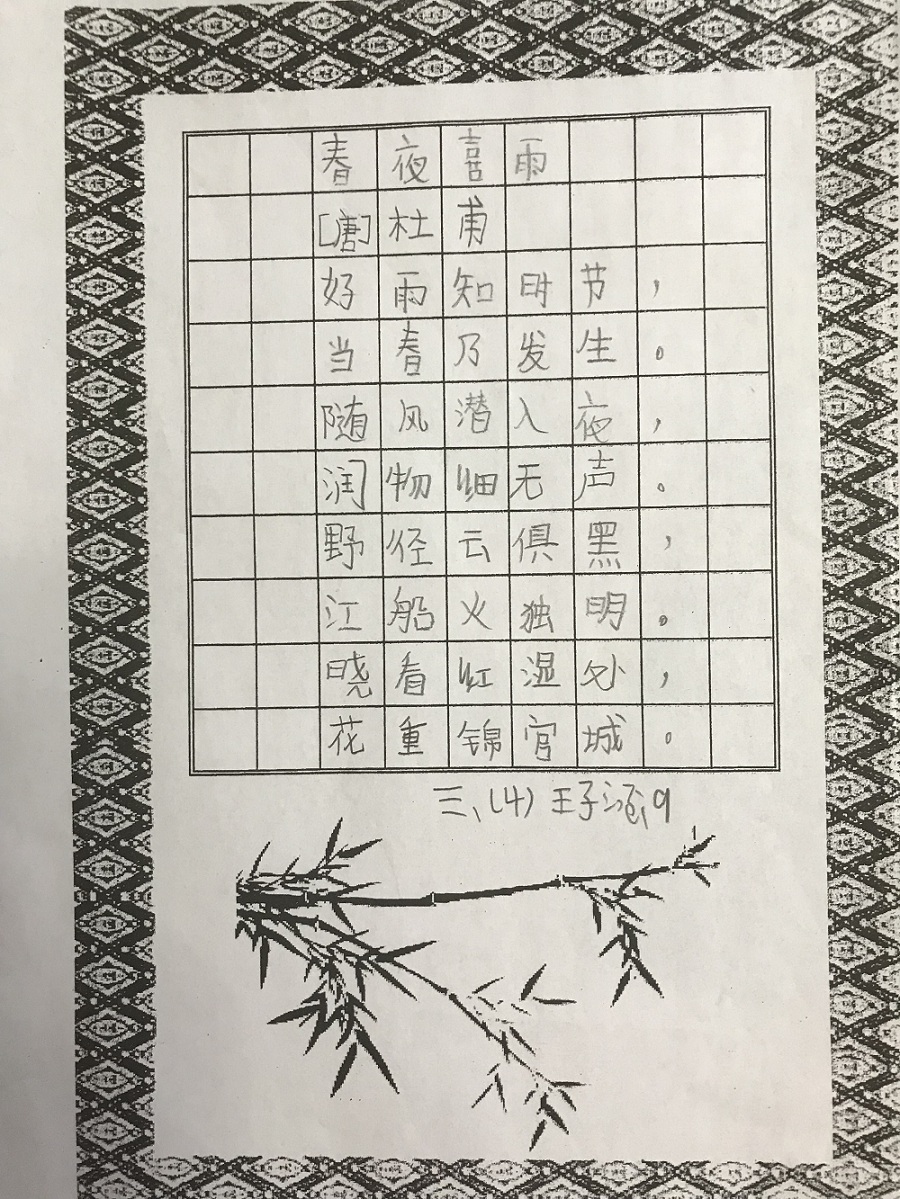 春夜喜雨
[唐]杜甫
好雨知时节，
当春乃发生。
随风潜入夜，
润物细无声。
野径云俱黑，
江船火独明。
晓看红湿处，
花重锦官城。
三、(4) 王子涵 9